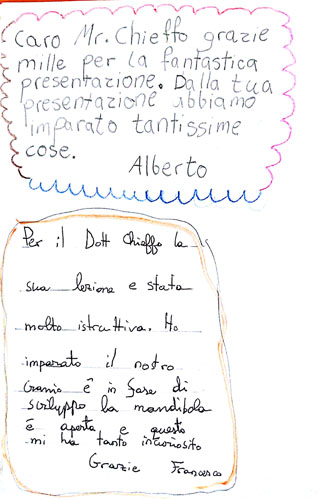 Caro Mr. Chieffo grazie
mille per la fantastica
presentazione. Dalla tua
presentazione abbiamo
imparato tantissime
cose.
Alberto
Per il Dott Chieffo la
sua lezione e stata
molto istruttiva. Ho
imparato il nostro
cranio è in fase di
sviluppo la mandibola
è aperta e questo
mi ha tanto incuriosito
Grazie Francesco